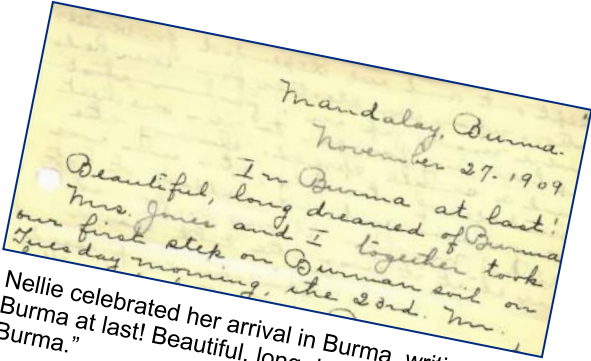 Mandalay, Burma.
November 27-1909
In Burma at last!
Beautiful, long dreamed of Burma
Mrs. Jones and I together took
our first step on Burman soil on
Tuesday morning, the 23rd. Mr.
Nellie celebrated her arrival in Burma, writi
Burma at last! Beautiful, long
Burma.”